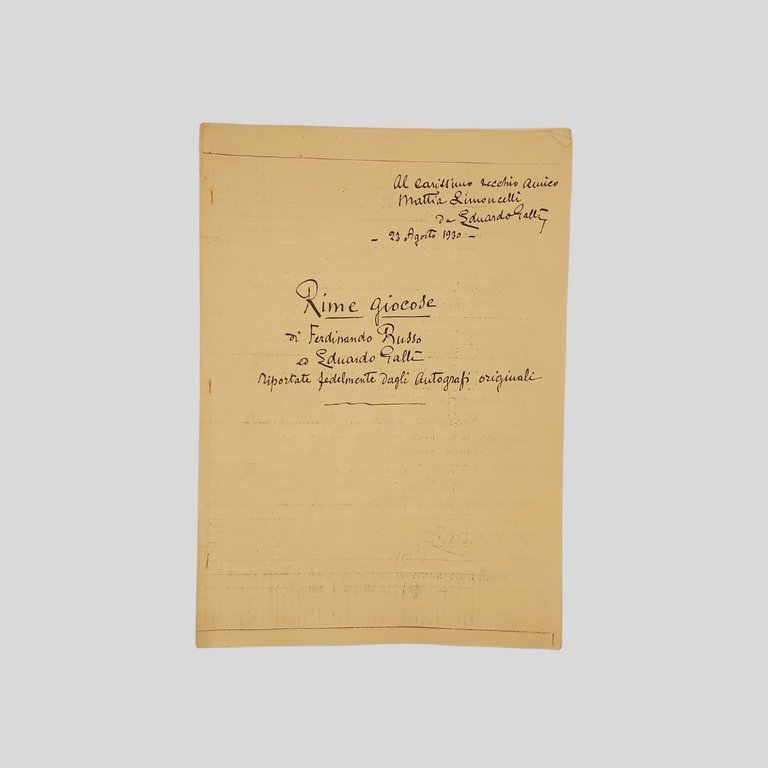 Al Carissimo vecchio Amico
Mattia Limoncelli
da Eduardo Galli
- 23 Agosto 1930 -
Rime giocose
di Ferdinando Russo
ed Eduardo Galli
Riportate fedelmente dagli Autografi originali